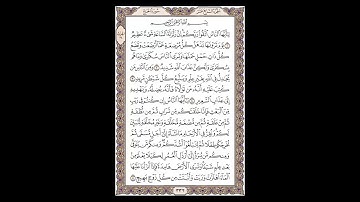 بِسْمِ اللَّهِ الرَّحْمَٰنِ الرَّحِيمِ
يَٰٓأَيُّهَا ٱلنَّاسُ ٱتَّقُوا۟ رَبَّكُمْ إِنَّ زَلْزَلَةَ ٱلسَّاعَةِ شَىْءٌ عَظِيمٌ
١ يَوْمَ تَرَوْنَهَا تَذْهَلُ كُلُّ مُرْضِعَةٍ عَمَّآ أَرْضَعَتْ وَتَضَعُ
كُلُّ ذَاتِ حَمْلٍ حَمْلَهَا وَتَرَى ٱلنَّاسَ سُكَٰرَىٰ وَمَا هُم
بِسُكَٰرَىٰ وَلَٰكِنَّ عَذَابَ ٱللَّهِ شَدِيدٌ ٢ وَمِنَ ٱلنَّاسِ مَن
يُجَٰدِلُ فِى ٱللَّهِ بِغَيْرِ عِلْمٍ وَيَتَّبِعُ كُلَّ شَيْطَٰنٍ مَّرِيدٍ ٣
كُتِبَ عَلَيْهِ أَنَّهُۥ مَن تَوَلَّاهُ فَأَنَّهُۥ يُضِلُّهُۥ وَيَهْدِيهِ
إِلَىٰ عَذَابِ ٱلسَّعِيرِ ٤ يَٰٓأَيُّهَا ٱلنَّاسُ إِن كُنتُمْ فِى رَيْبٍ
مِّنَ ٱلْبَعْثِ فَإِنَّا خَلَقْنَٰكُم مِّن تُرَابٍ ثُمَّ مِن نُّطْفَةٍ
ثُمَّ مِنْ عَلَقَةٍ ثُمَّ مِن مُّضْغَةٍ مُّخَلَّقَةٍ وَغَيْرِ مُخَلَّقَةٍ لِّنُبَيِّنَ
لَكُمْ وَنُقِرُّ فِى ٱلْأَرْحَامِ مَا نَشَآءُ إِلَىٰٓ أَجَلٍ مُّسَمًّى ثُمَّ
نُخْرِجُكُمْ طِفْلًا ثُمَّ لِتَبْلُغُوٓا۟ أَشُدَّكُمْ وَمِنكُم مَّن يُتَوَفَّىٰ
وَمِنكُم مَّن يُرَدُّ إِلَىٰٓ أَرْذَلِ ٱلْعُمُرِ لِكَيْلَا يَعْلَمَ مِنۢ
بَعْدِ عِلْمٍ شَيْـًٔا وَتَرَى ٱلْأَرْضَ هَامِدَةً فَإِذَآ أَنزَلْنَا عَلَيْهَا
ٱلْمَآءَ ٱهْتَزَّتْ وَرَبَتْ وَأَنۢبَتَتْ مِن كُلِّ زَوْجٍۭ بَهِيجٍ ٥
٣٣٢